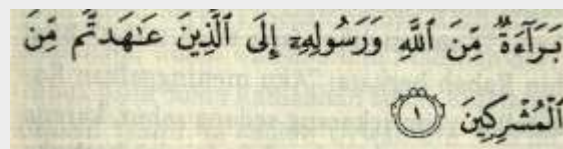 بَرَآءَةٌ مِّنَ ٱللَّهِ وَرَسُولِهِۦٓ إِلَى ٱلَّذِينَ عَٰهَدتُّم مِّنَ
ٱلْمُشْرِكِينَ ١